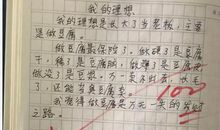 我的理想
我的理想是长大了当老板,主要
是做豆腐。
做豆腐最保险了,做硬了是豆腐
干,稀了是豆腐脑,做薄了是豆腐皮,
做没了是豆浆,万一卖不出去,放臭
了,还能当臭豆腐卖。
我觉得做豆腐是万无一失的发财
之路。
100